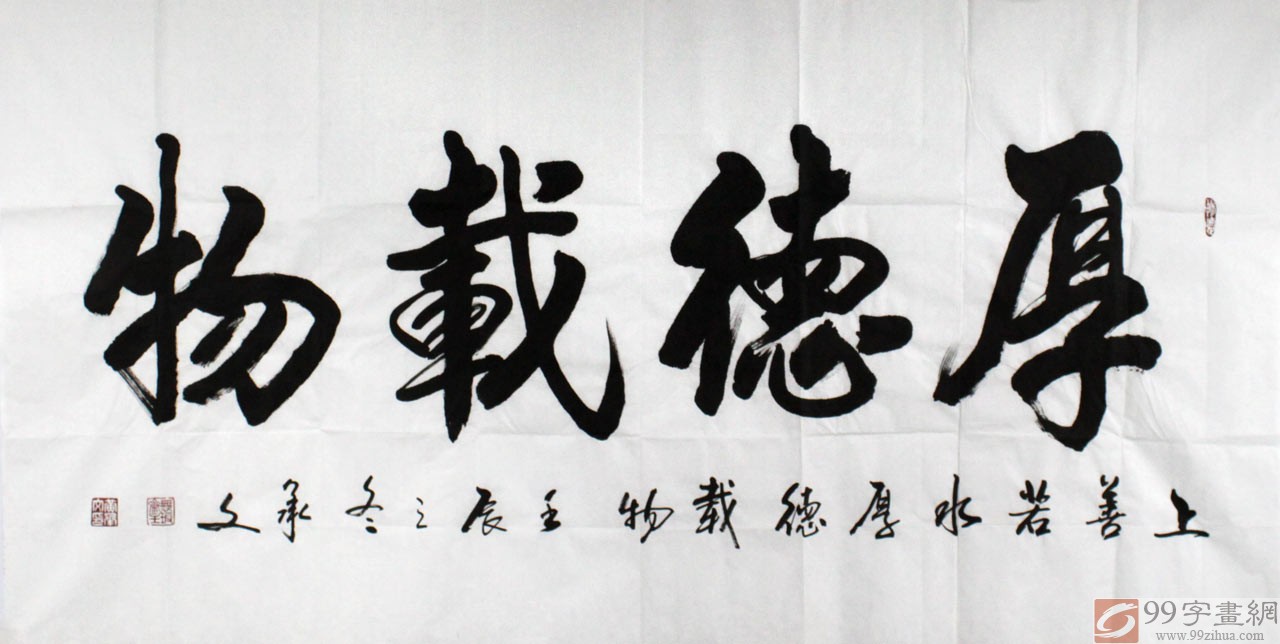 厚德載物
上善若水厚德載物壬辰之冬承文
99字畫網
www.99zihua.com